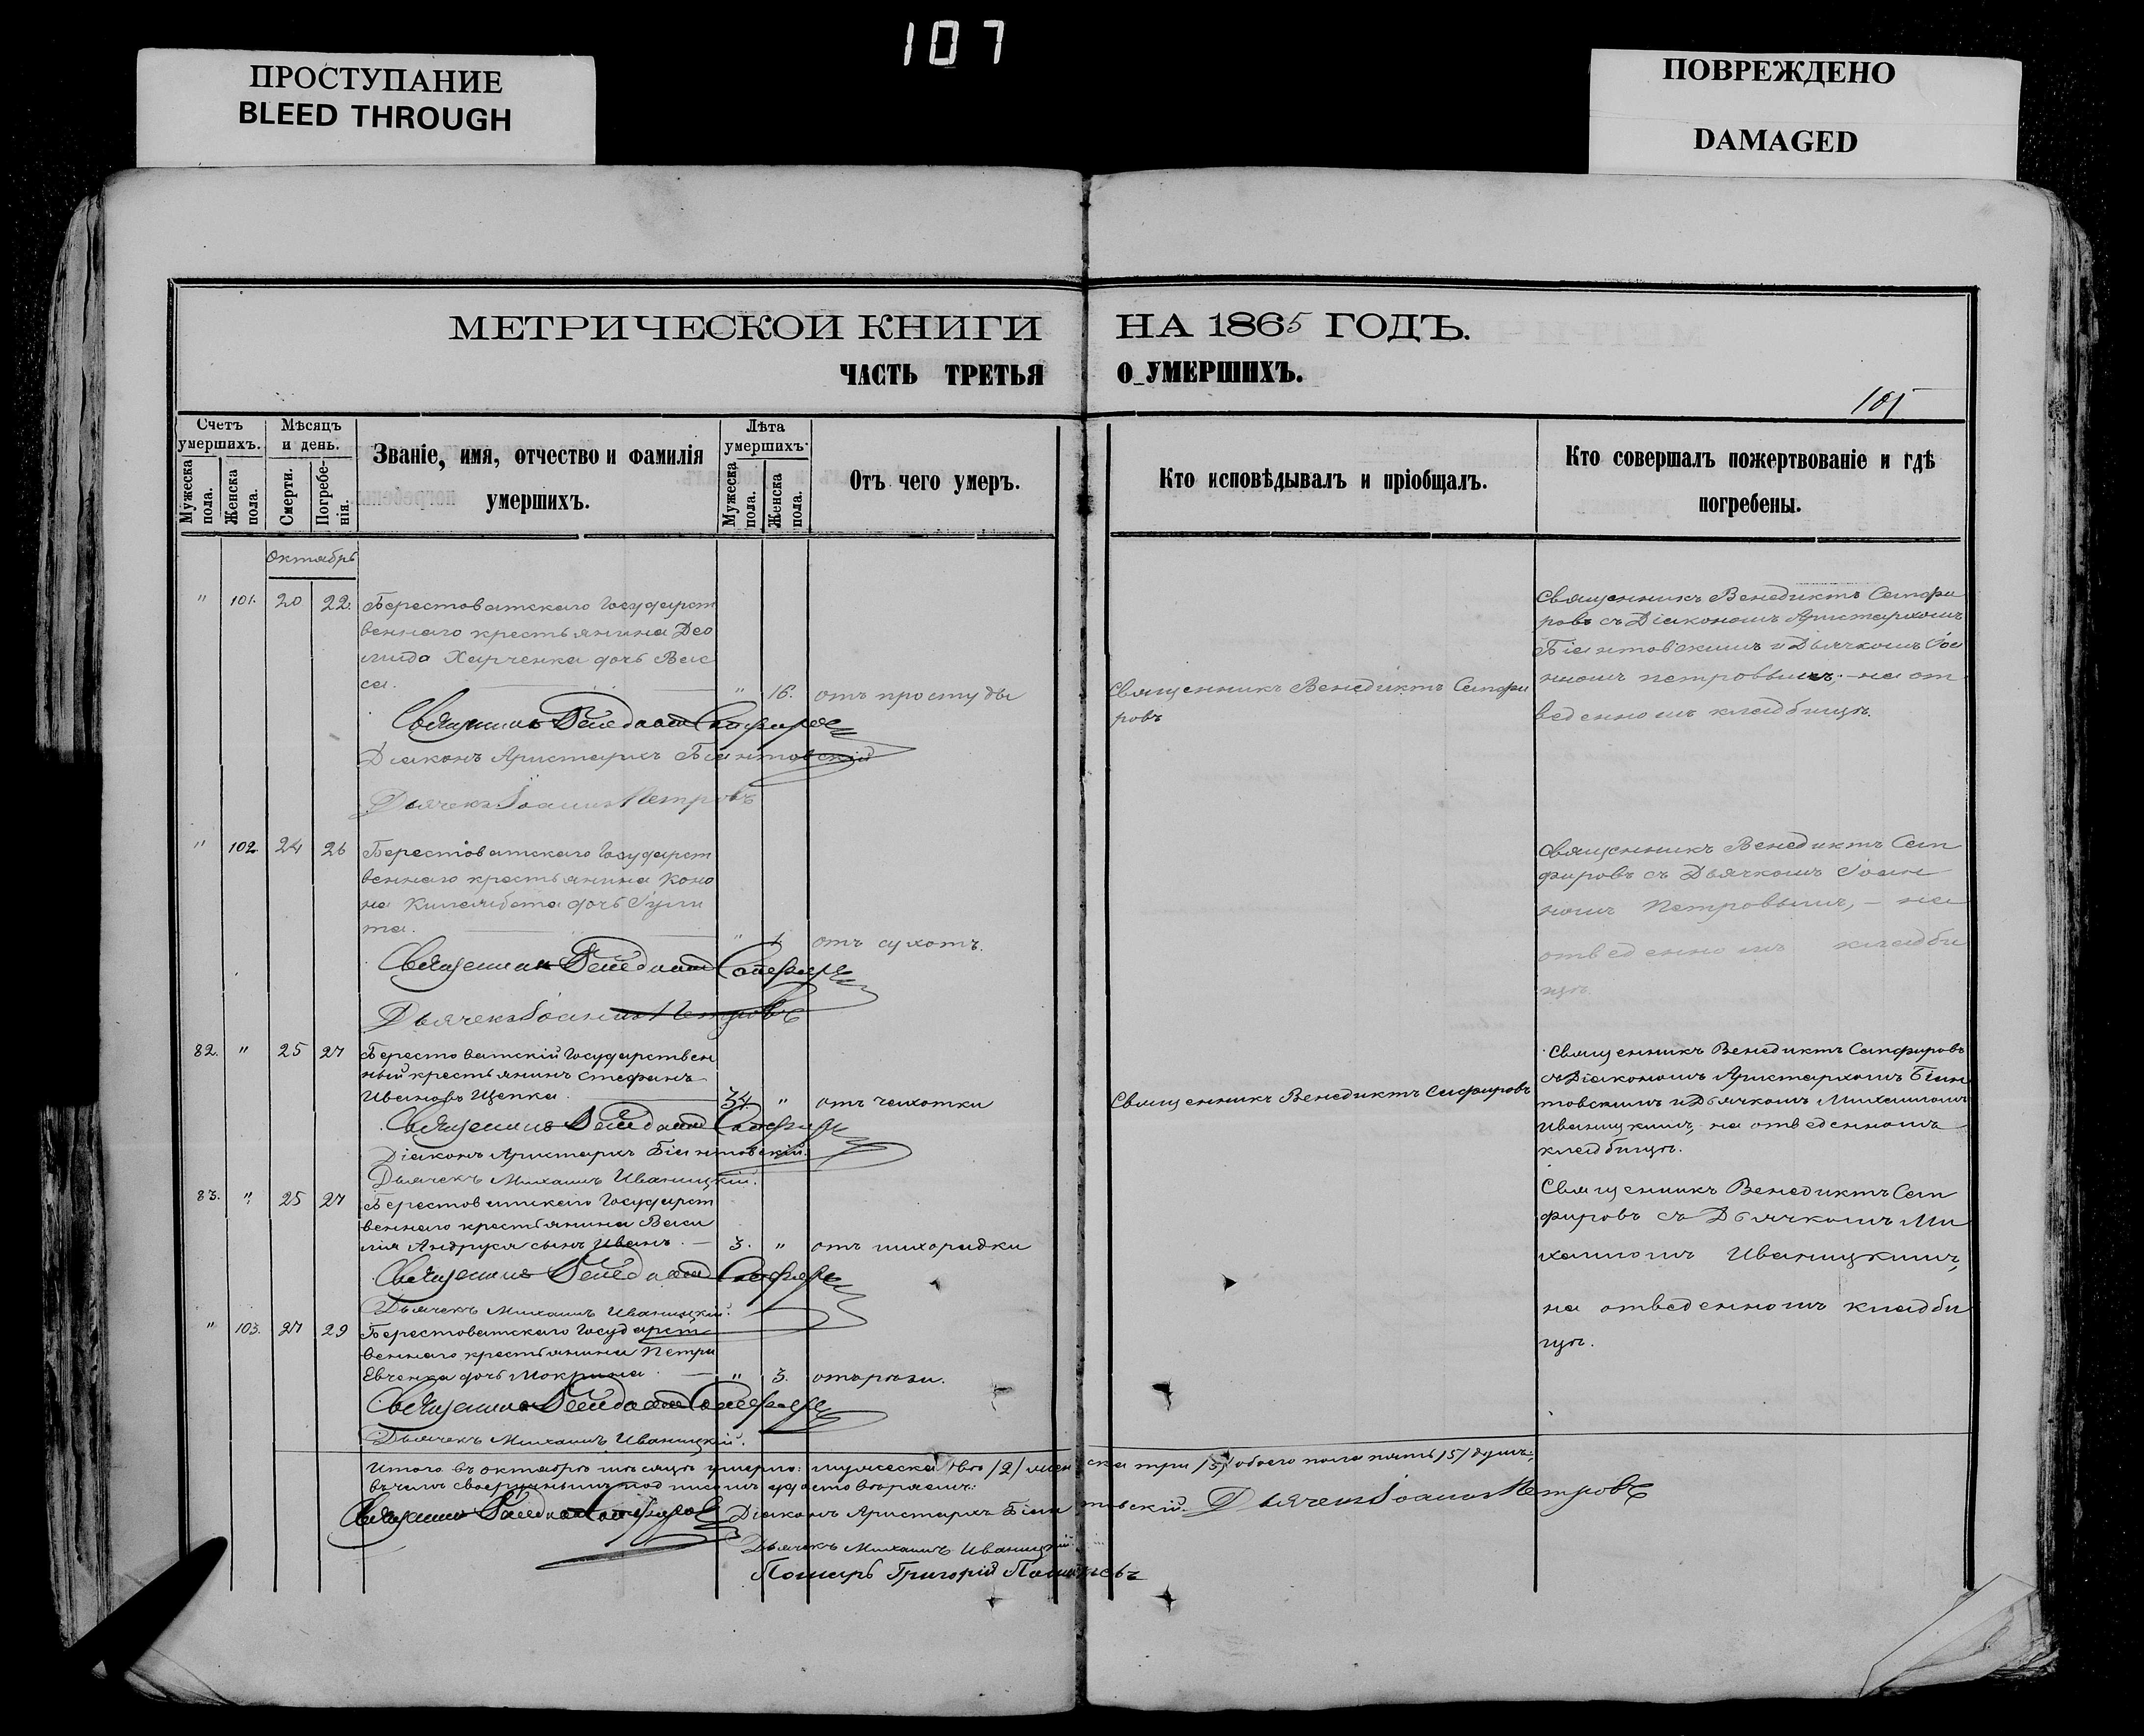 107
ПРОСТУПАНИЕ
BLEED THROUGH
ПОВРЕЖДЕНО
DAMAGED
МЕТРИЧЕСКОЙ КНИГИ НА 1865 ГОДЪ.
ЧАСТЬ ТРЕТЬЯ О УМЕРШИХЪ.
105
Счетъ умершихъ.
Мужеска пола.
Женска пола.
Мѣсяцъ и день.
Смерти.
Погребенія.
Званіе, имя, отчество и фамилія
умершихъ.
Лѣта умершихъ
Мужеска пола.
Женска пола.
Отъ чего умеръ.
Кто исповѣдывалъ и пріобщалъ.
Кто совершалъ пожертвованіе и гдѣ
погребены.
Октябрь
" 101. 20 22. Берестоватскаго Государст
веннаго крестьянина Део
мида Харченка дочь Вас
са. " 16. отъ простуды
Священникъ Венедиктъ Сапфировъ
Діаконъ Аристархъ Біантовскій
Дьячекъ Іоаннъ Петровъ
Священникъ Венедиктъ Сапфи
ровъ
Священникъ Венедиктъ Сапфи
ровъ съ Діакономъ Аристархомъ
Біантовскимъ и Дьячкомъ Іоа
нномъ Петровымъ, на от
веденномъ кладбищѣ.
" 102. 24 26 Берестоватскаго Государст
веннаго крестьянина Коно
на дочь Ули
та. " 1. отъ сухотъ.
Священникъ Венедиктъ Сапфировъ
Дьячекъ Іоаннъ Петровъ
Священникъ Венедиктъ Сап
фировъ съ Дьячкомъ Іоан
номъ Петровымъ, – на
отведенномъ кладби
щѣ.
82. " 25 27 Берестоватскій Государствен
ный крестьянинъ Стефанъ
Ивановъ Щепка. 34. " отъ чахотки
Священникъ Венедиктъ Сапфировъ
Діаконъ Аристархъ Біантовскій.
Дьячекъ Михаилъ Иваницкій.
Священникъ Венедиктъ Сапфировъ
Священникъ Венедиктъ Сапфировъ
съ Діакономъ Аристархомъ Біан
товскимъ и Дьячкомъ Михаиломъ
Иваницкимъ, на отведенномъ
кладбищѣ.
83. " 25 27 Берестоватскаго Государст
веннаго крестьянина Васи
лія Андруся сынъ Иванъ. 3. " отъ лихорадки
Священникъ Венедиктъ Сапфировъ
Дьячекъ Михаилъ Иваницкій.
Священникъ Венедиктъ Сап
фировъ съ Дьячкомъ Ми
хаиломъ Иваницкимъ,
на отведенномъ кладби
щѣ.
" 103. 27 29 Берестоватскаго Государст
веннаго крестьянина Петра
Евченка дочь Мокрина. " 3. отъ рѣзи.
Священникъ Венедиктъ Сапфировъ
Дьячекъ Михаилъ Иваницкій.
Итого въ октябрѣ мѣсяцѣ умерло: мужеска два /2/ женска три /3/ обоего пола пять /5/ душъ;
въ чемъ своеручнымъ подписомъ удостовѣряемъ:
Священникъ Венедиктъ Сапфировъ Діаконъ Аристархъ Біантовскій. Дьячекъ Іоаннъ Петровъ
Дьячекъ Михаилъ Иваницкій.
Пономарь Григорій